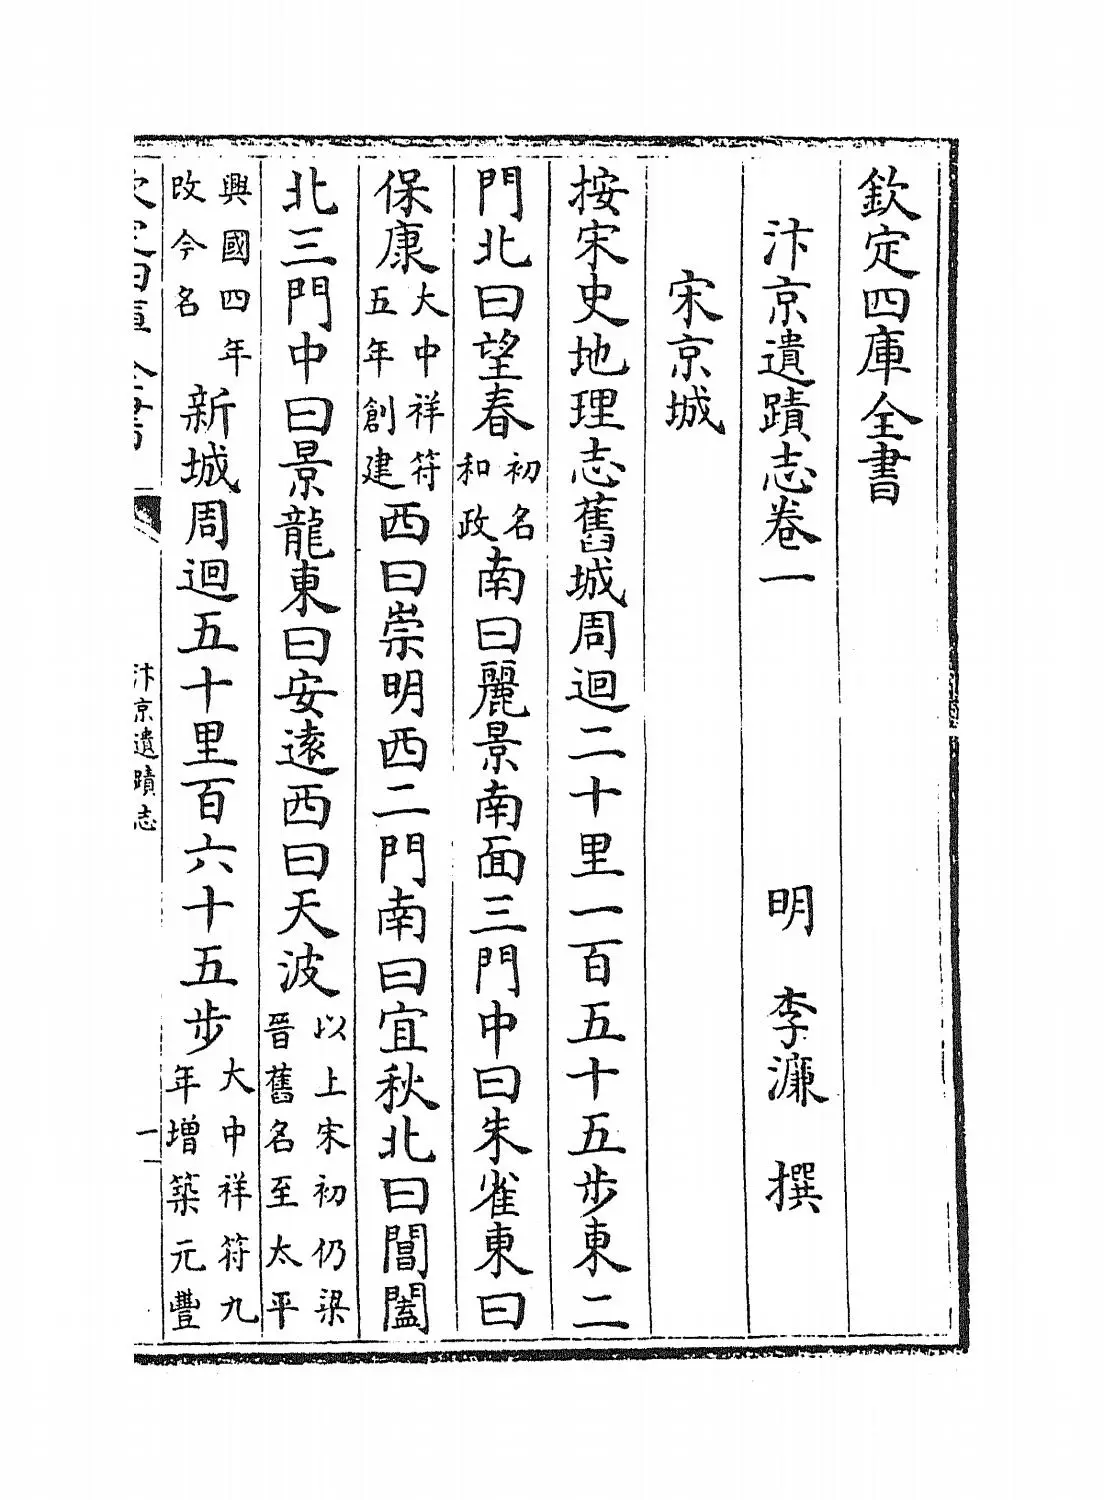 欽定四庫全書
汴京遺蹟志卷一　　　明　李濂　撰
宋京城
按宋史地理志舊城周迴二十里一百五十五步東二
門北曰望春初名和政南曰麗景南面三門中曰朱雀東曰
保康大中祥符五年創建西曰崇明西二門南曰宜秋北曰閶闔
北三門中曰景龍東曰安遠西曰天波以上宋初仍梁晉舊名至太平
興國四年改今名新城周迴五十里百六十五步大中祥符九年增築元豐
汴京遺蹟志
一